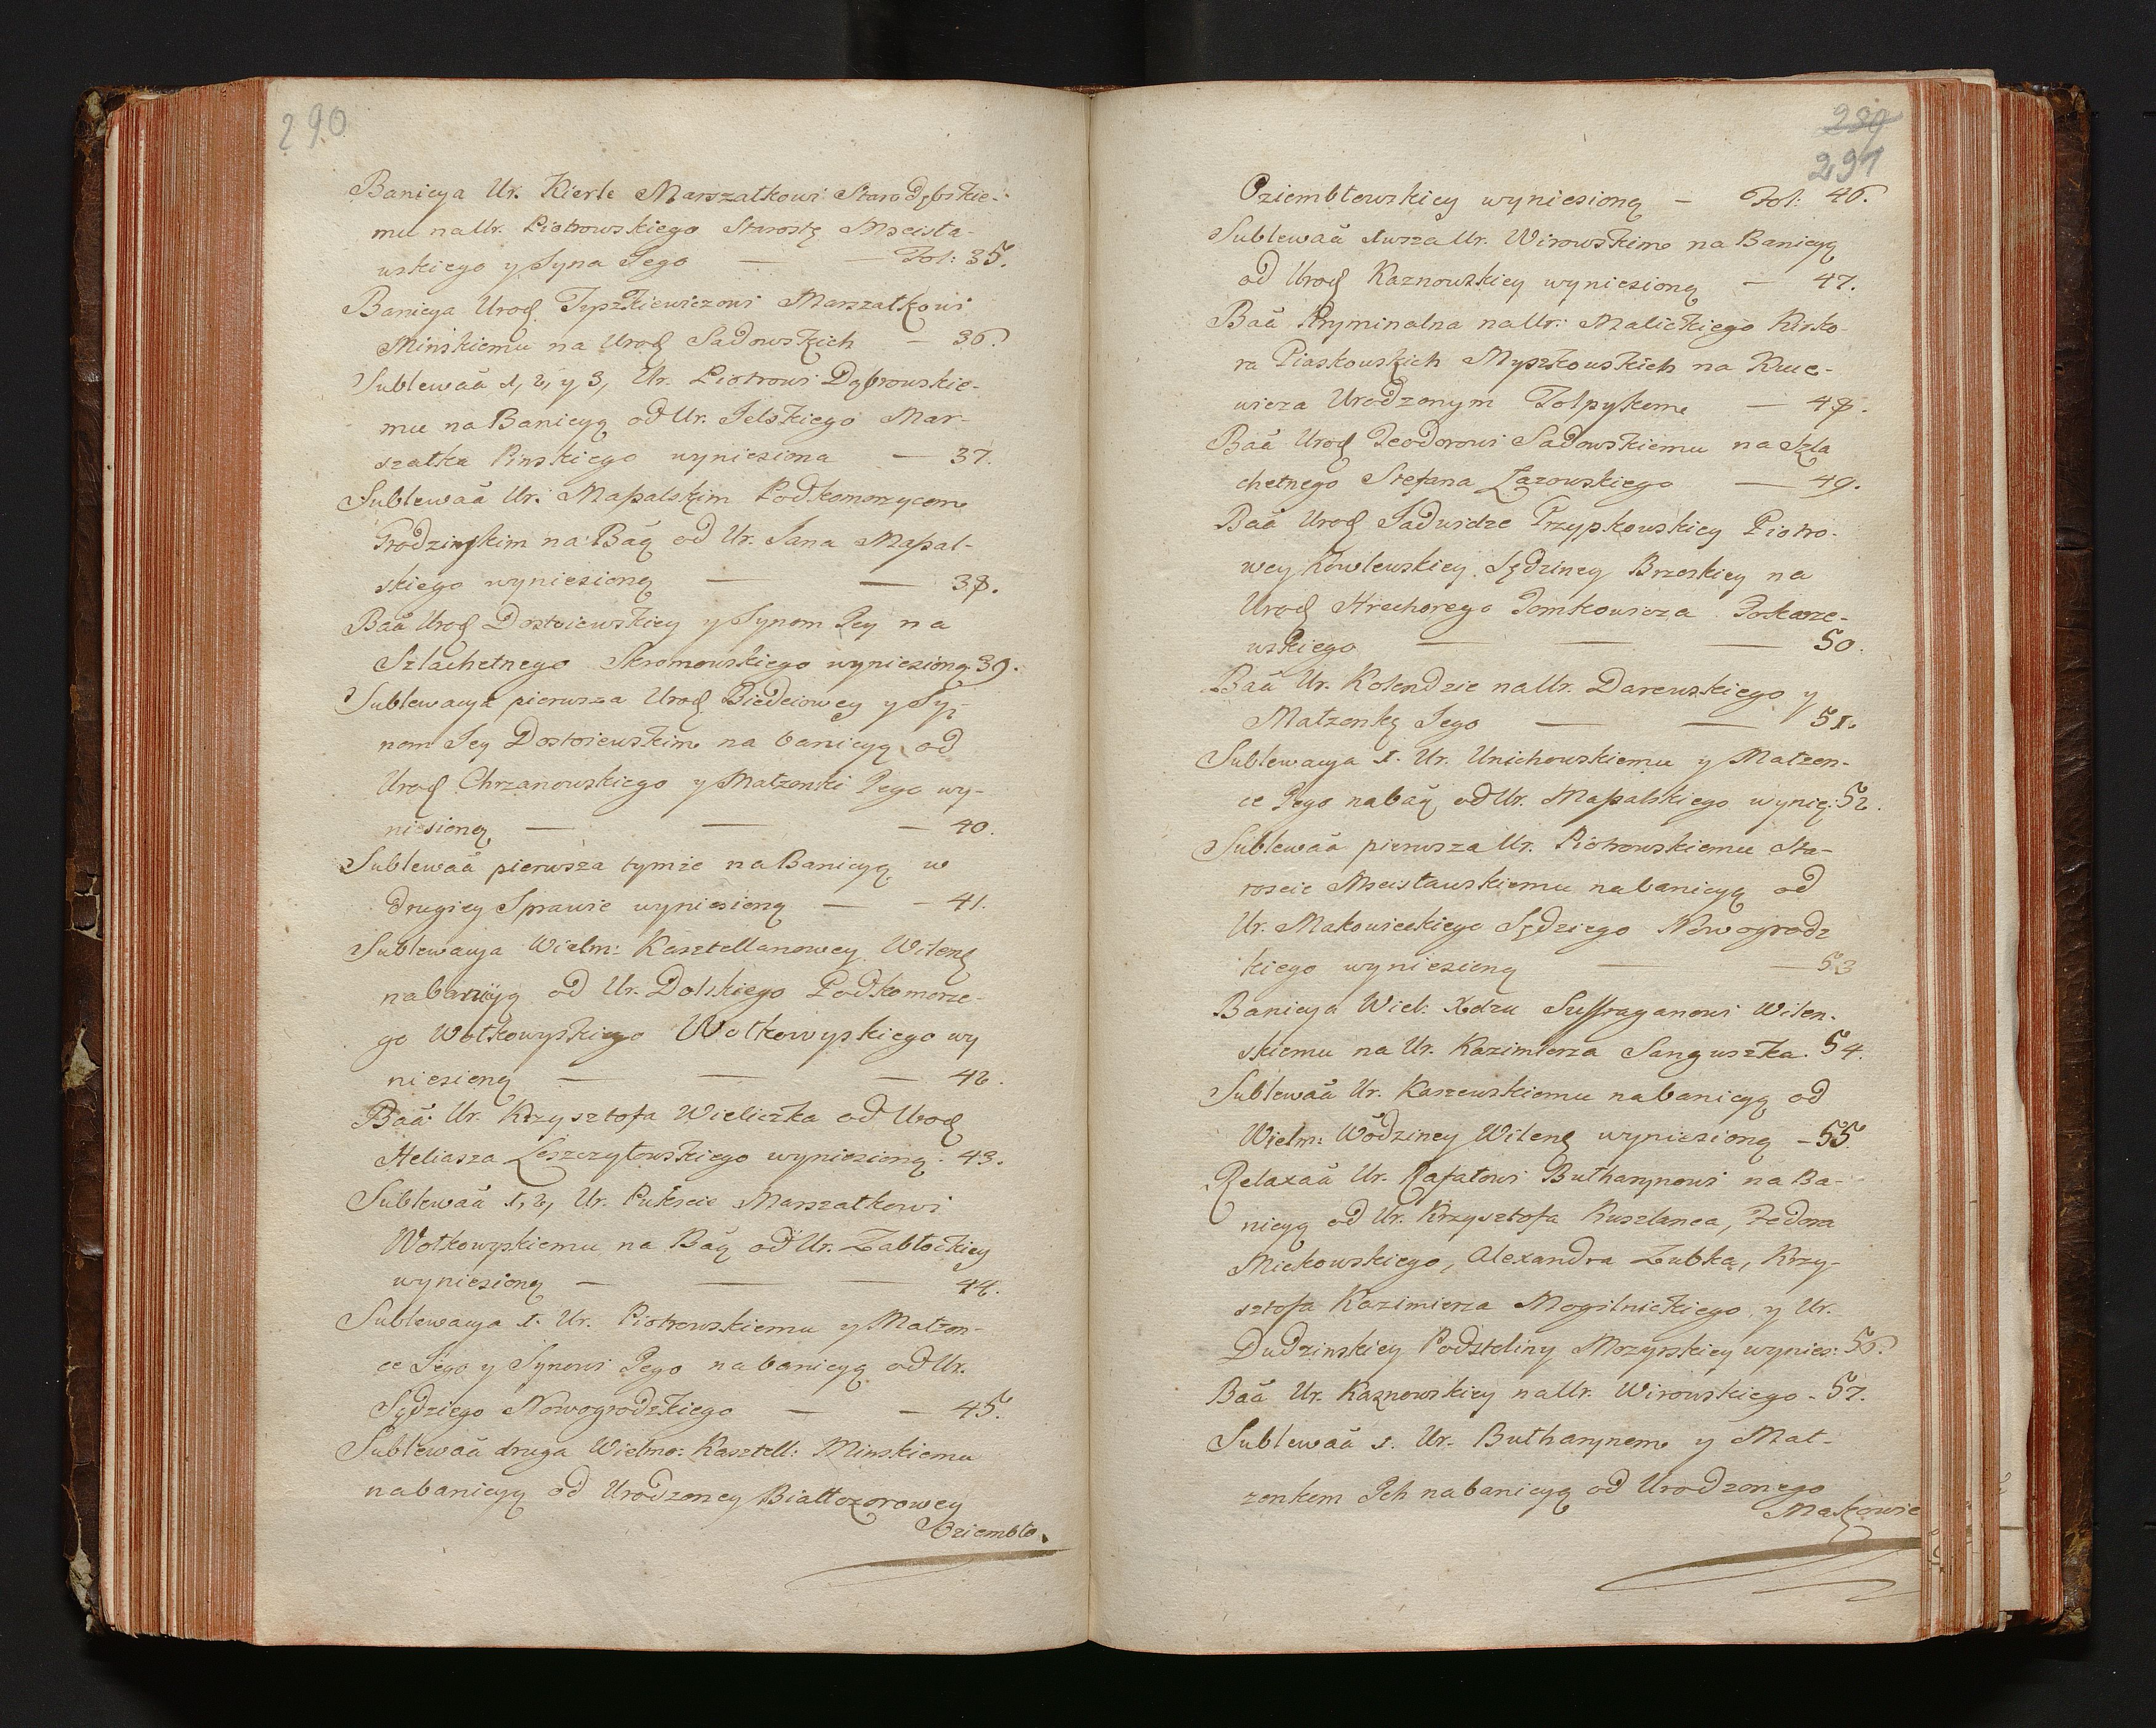 290
Banicya Ur. Kierle Marszałkowi Starodębskie-
mu na Ur. Piotrowskiego Starostę Mscisła-
wskiego y Syna Jego — — Fol: 35.
Banicya Urod Tyszkiewiczowi Marszałkowi
Minskiemu na Urod Sadowskich — 36.
Sublewaã 1, 2, y 3, Ur. Piotrowi Dąbrowskie-
mu na Banicyą od Ur. Jelskiego Mar-
szałka Pinskiego wyniesiona — 37.
Sublewaã Ur: Massalskim Podkomorzycom
Grodzinskim na Bãą od Ur. Jana Massal-
skiego wyniesioną — — 38.
Baã Urod Dostoiewskiey y Synom Jey na
Szlachetnego Skromowskiego wyniesioną 39.
Sublewacya pierwsza Urod Biedciowey y Sy-
nom Jey Dostoiewskim na banicyą od
Urod Chrzanowskiego y Małzonki Jego wy-
niesioną — — — 40.
Sublewaã pierwsza tymże na Banicyą w
drugiey Sprawie wyniesioną — — 41.
Sublewacya Wielm: Kasztellanowey Wilenſ
na banicyą od Ur. Dolskiego Podkomorze-
go Wołkowyskiego Wołkowyskiego wy
niesioną — — — 42.
Baã Ur. Krzysztofa Wieliczka od Urod
Heliasza Leszczyłowskiego wyniesioną. 43.
Sublewaã 1, 2, Ur. Pukszcie Marszałkowi
Wołkowyskiemu na Bãą od Ur. Zabłockiey
wyniesioną — — — 44.
Sublewacya 1. Ur. Piotrowskiemu y Małzon-
ce Jego y Synowi Jego na banicyą od Ur.
Sędziego Nowogrodzkiego — — 45.
Sublewaã druga Wielmo: Kasztell: Minskiemu
na banicyą od Urodzoney Białłozorowey
Oziembło.
289
291
Oziembłowskiey wyniesioną — Fol: 46.
Sublewaã 1wsza Ur. Wirowskim na Banicyą
od Urod Kaznowskiey wyniesioną — 47.
Baã Kryminalna na Ur: Malickiego Kisko-
ra Piaskowskich Myszkowskich na Kruc-
wicza Urodzonym Tołpykom — 48.
Baã Urod Teodorowi Sadowskiemu na Szla
chetnego Stefana Łazowskiego — 49.
Baã Urod Jadwidze Przypkowskiey Piotro-
wey Kowlewskiey Sędziney Brzeskiey na
Urod Hrechorego Tomkowicza Poskarze-
wskiego — — — 50.
Baã Ur. Kolendzie na Ur. Darewskiego y
Małzonkę Jego — — 51.
Sublewacya 1. Ur. Unichowskiemu y Małzon-
ce Jego na bãą od Ur. Massalskiego wynie: 52.
Sublewaã pierwsza Ur. Piotrowskiemu Sta-
roscie Mscisławskiemu na banicyą od
Ur. Makowieckiego Sędziego Nowogrodz
kiego wyniesioną — — 53
Banicya Wiel: Xdzu Suffraganowi Wilen-
skiemu na Ur. Kazimierza Sanguszka. 54.
Sublewaã Ur. Kaszewskiemu na banicyą od
Wielm: Wödziney Wilenſ wyniesioną - 55.
Relaxaã Ur. Rafałowi Butharynowi na Ba-
nicyą od Ur. Krzysztofa Ruszlanca, Fedora
Mickowskiego, Alexandra Zubka, Krzy-
sztofa Kazimierza Mogilnickiego y Ur.
Dudzinskiey Podstoliny Mozyrskiey wynies: 56.
Baã Ur. Kaznowskiey na Ur. Wirowskiego - 57.
Sublewaã 1. Ur. Butharynom y Mał-
zonkom Ich na banicyą od Urodzonego
Makowie